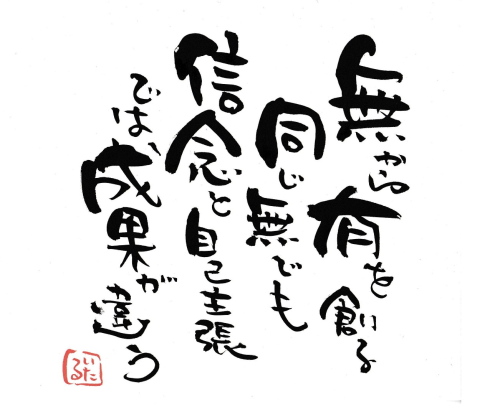 無から有を創る
同じ無でも
信念と自己主張
では、成果が違う